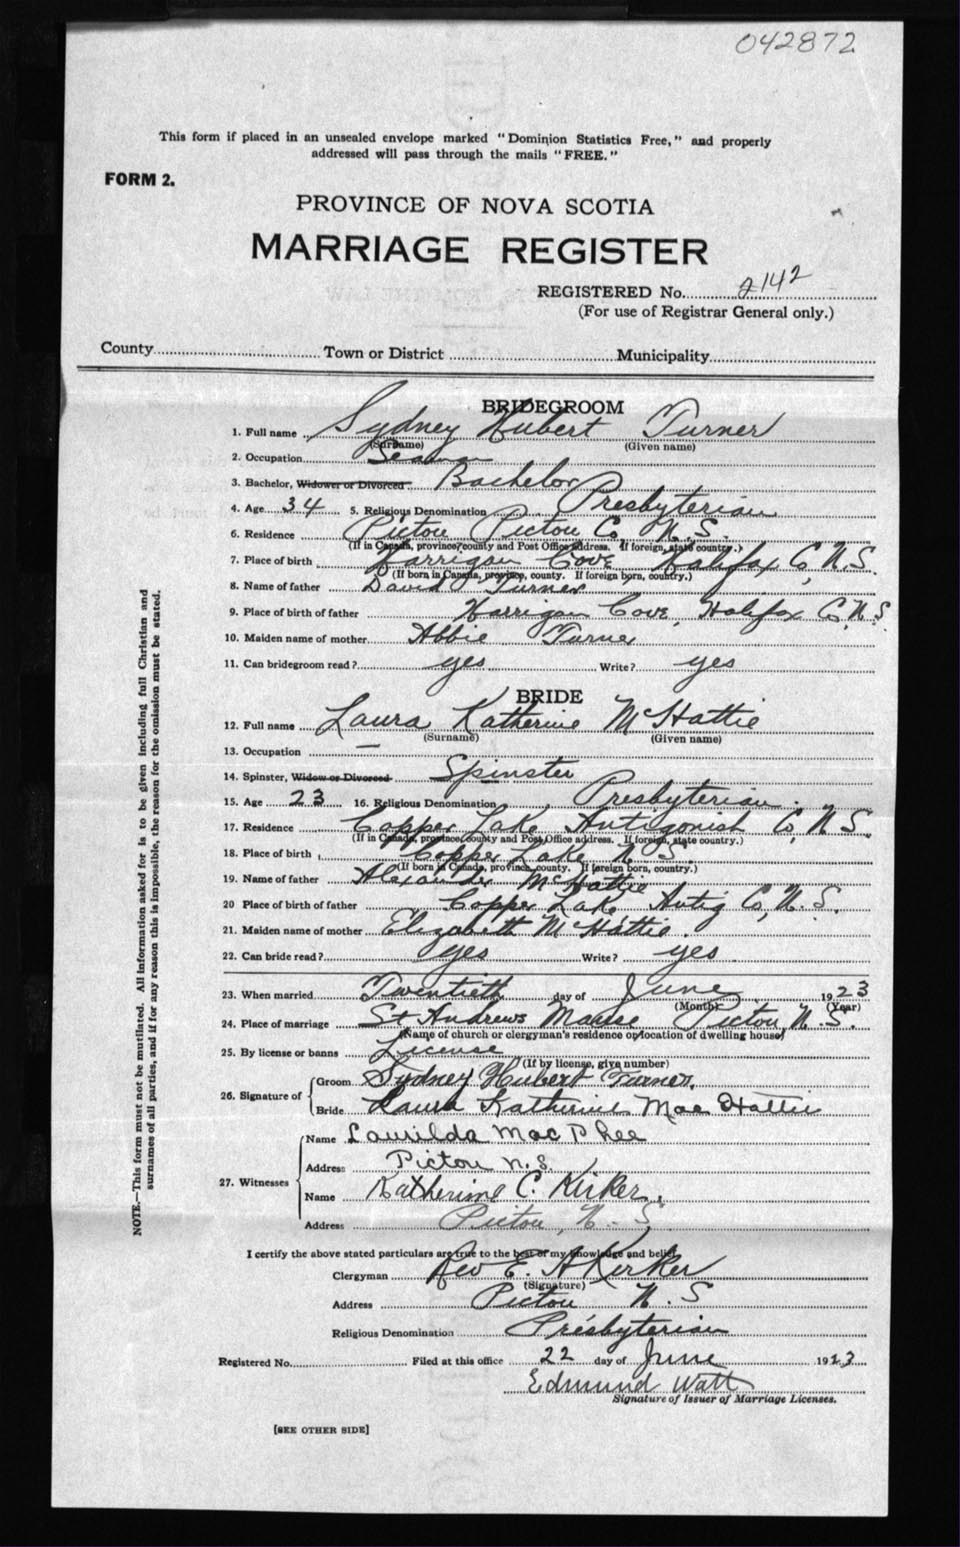 042872
This form if placed in an unsealed envelope marked "Dominion Statistics Free," and properly
addressed will pass through the mails "FREE."
FORM 2.
PROVINCE OF NOVA SCOTIA
MARRIAGE REGISTER
REGISTERED No. 2142
(For use of Registrar General only.)
County Town or District Municipality
BRIDEGROOM
1. Full name Sydney Hubert Turner
(Surname) (Given name)
2. Occupation Seaman
3. Bachelor, Widower or Divorced Bachelor
4. Age 34 5. Religious Denomination Presbyterian
6. Residence Pictou Pictou Co N.S.
(If in Canada, province, county and Post Office address. If foreign, state country.)
7. Place of birth Harrigan Cove Halifax Co, N.S.
(If born in Canada, province, county. If foreign born, country.)
8. Name of father David Turner
9. Place of birth of father Harrigan Cove, Halifax Co N.S
10. Maiden name of mother Abbie Turner
11. Can bridegroom read? yes Write? yes
BRIDE
12. Full name Laura Katherine McHattie
(Surname) (Given name)
13. Occupation —
14. Spinster, Widow or Divorced Spinster
15. Age 23 16. Religious Denomination Presbyterian.
17. Residence Copper Lake Antigonish Co, N.S.
(If in Canada, province, county and Post Office address. If foreign, state country.)
18. Place of birth Copper Lake N.S.
(If born in Canada, province, county. If foreign born, country.)
19. Name of father Alexander McHattie
20 Place of birth of father Copper Lake Antig Co, N.S.
21. Maiden name of mother Elizabeth McHattie.
22. Can bride read? yes Write? yes
23. When married Twentieth day of June 1923
(Month) (Year)
24. Place of marriage St Andrews Manse Pictou, N.S.
(Name of church or clergyman's residence or location of dwelling house)
25. By license or banns License
(If by license, give number)
26. Signature of Groom Sydney Hubert Turner.
Bride Laura Katherine MacHattie
27. Witnesses Name Laurilda MacPhee
Address Pictou N.S.
Name Katherine C. Kirker,
Address Pictou, N.S
I certify the above stated particulars are true to the best of my knowledge and belief.
Clergyman Rev E. A Kirker
(Signature)
Address Pictou N.S
Religious Denomination Presbyterian
Registered No. Filed at this office 22 day of June 1923
Edmund Watt
Signature of Issuer of Marriage Licenses.
[SEE OTHER SIDE]
NOTE.—This form must not be mutilated. All information asked for is to be given including full Christian and
surnames of all parties, and if for any reason this is impossible, the reason for the omission must be stated.